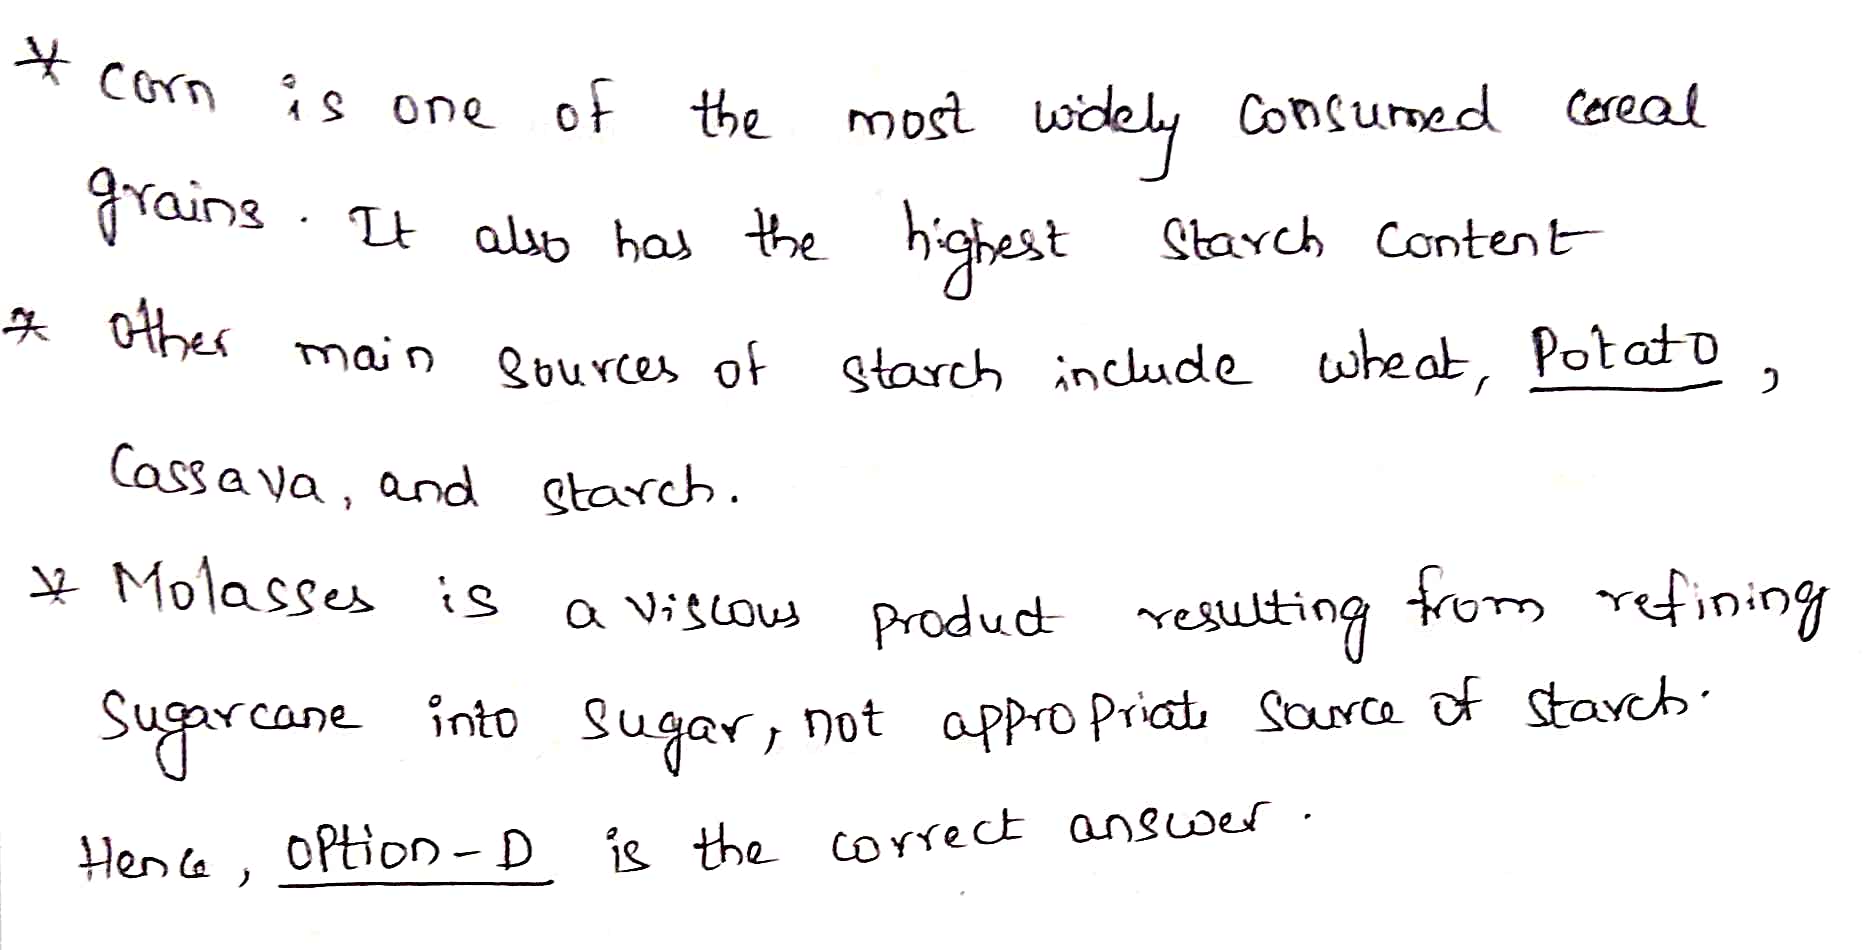 * Corn is one of the most widely consumed cereal
grains. It also has the highest starch content
* Other main sources of starch include wheat, Potato,
Cassava, and starch.
* Molasses is a viscous product resulting from refining
Sugarcane into sugar, not appropriate source of starch.
Hence, option-D is the correct answer.